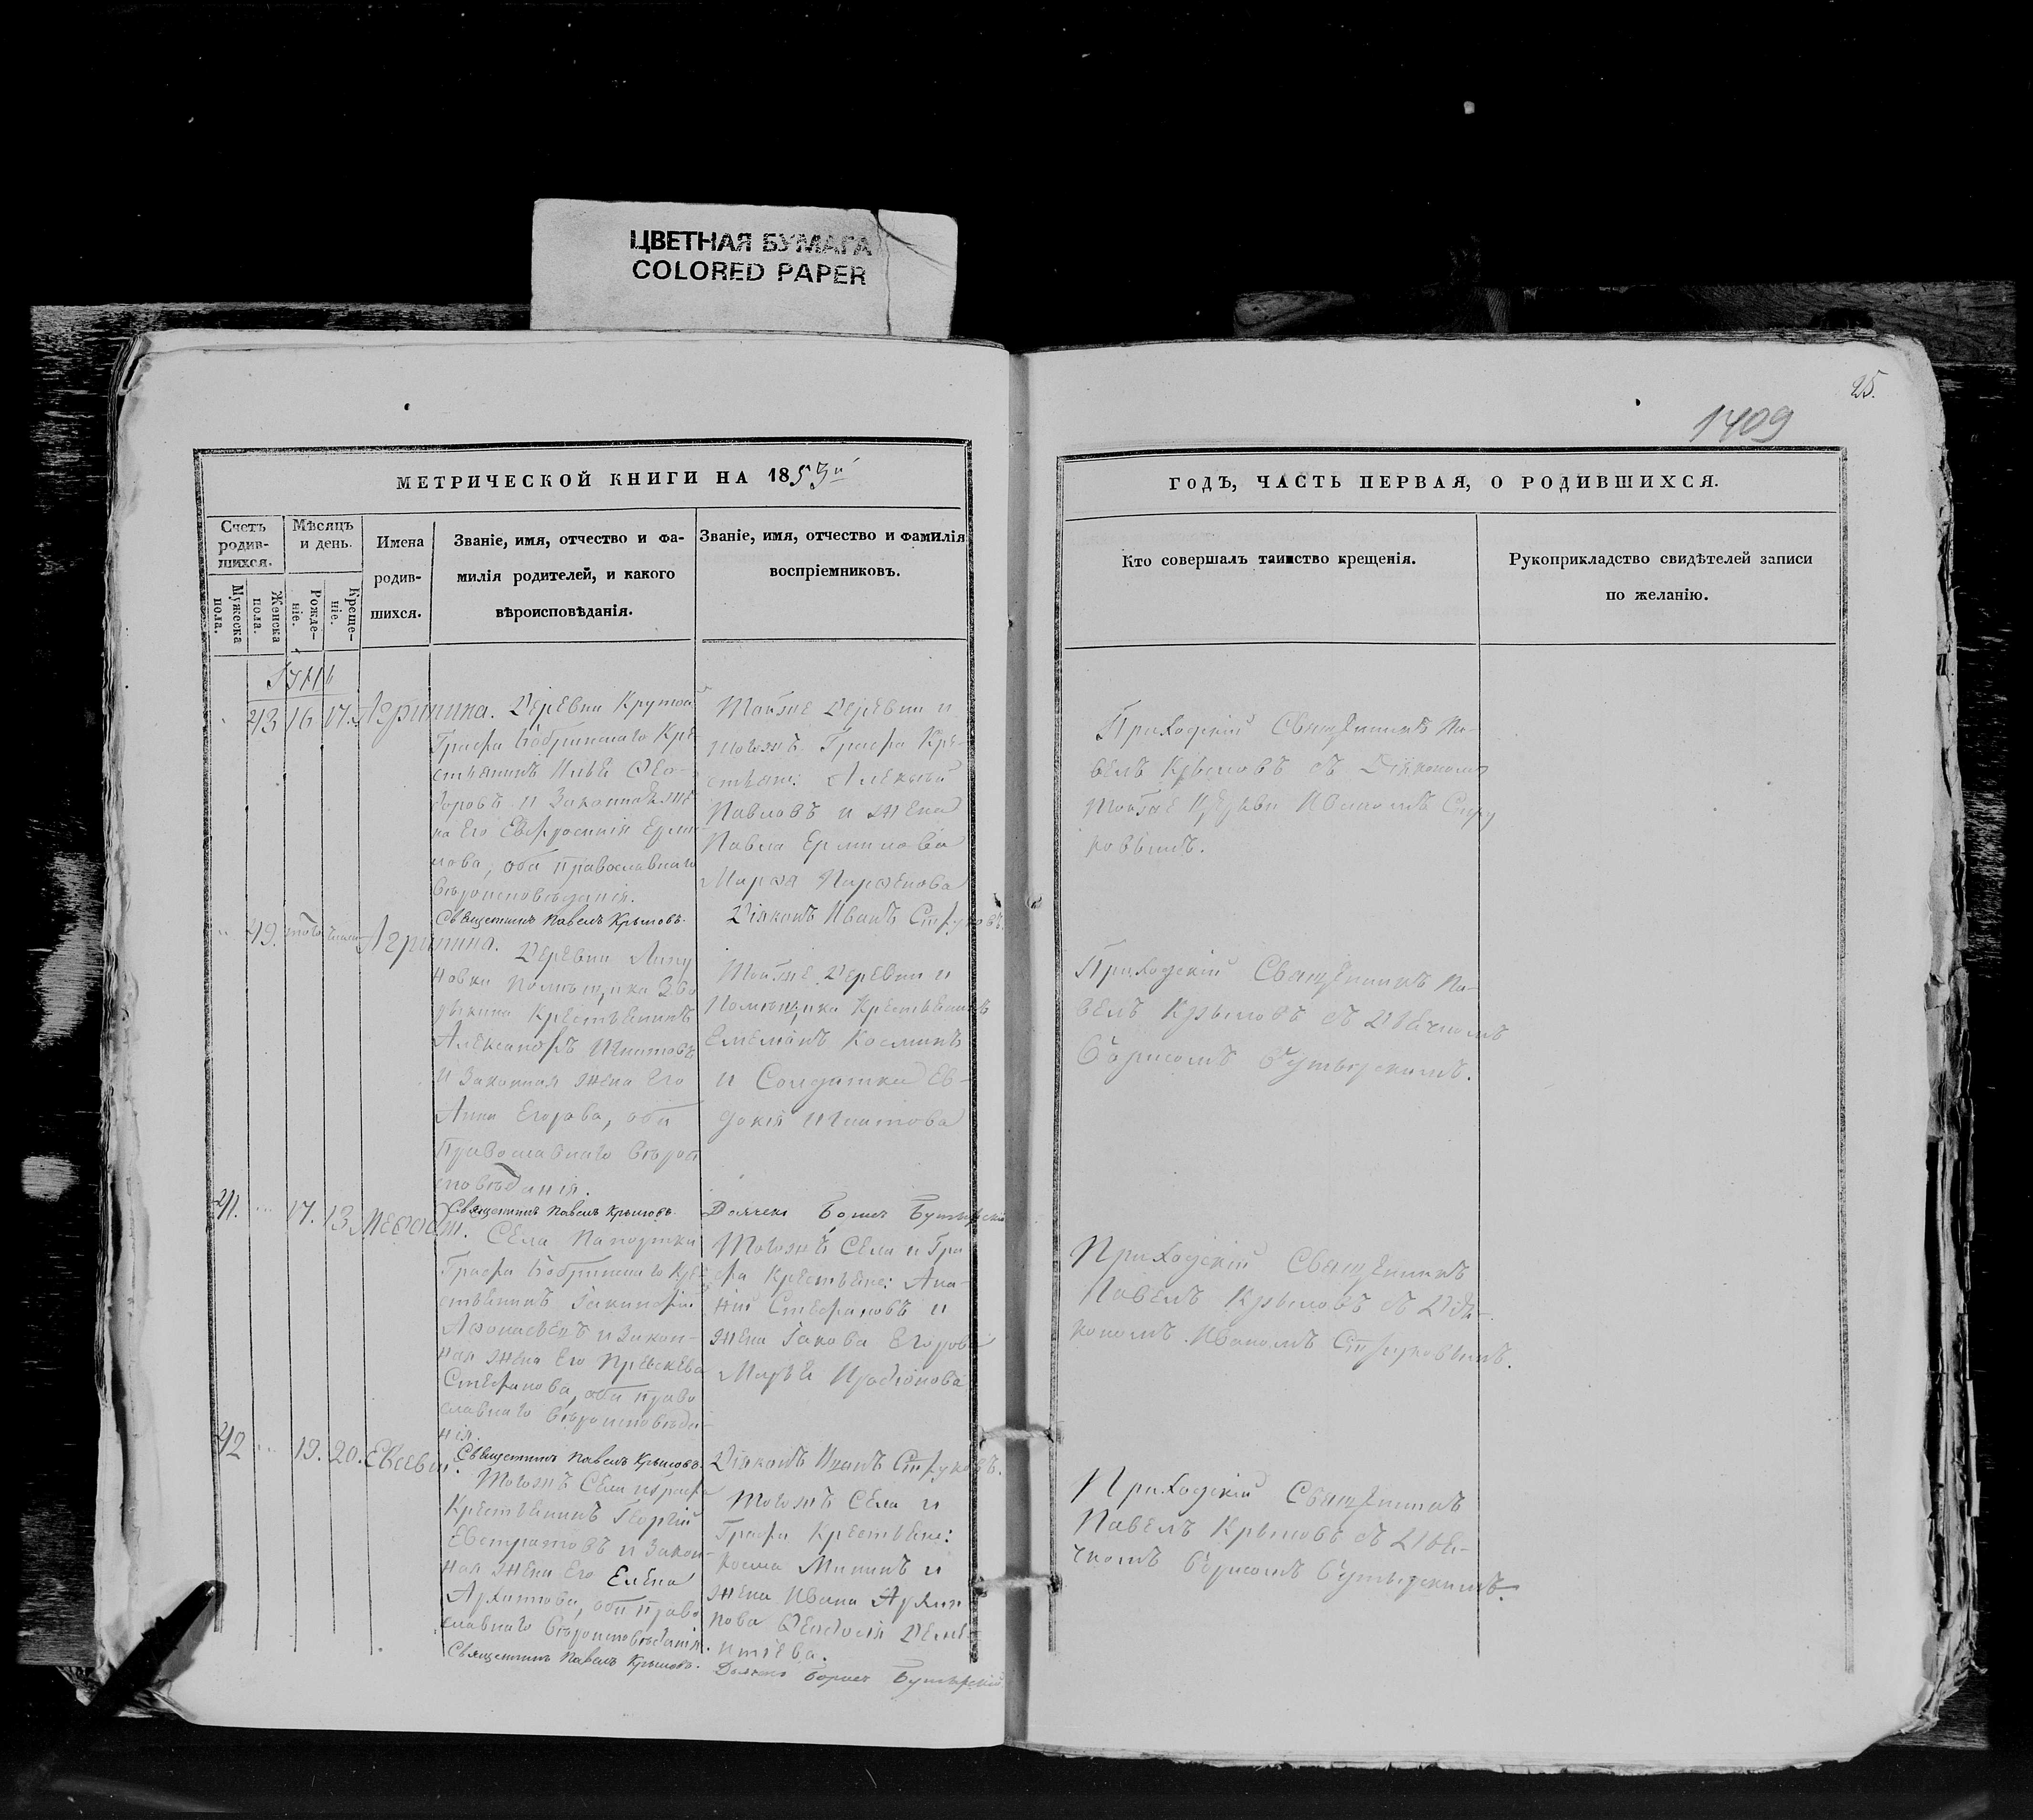 ЦВЕТНАЯ БУМАГА
COLORED PAPER
МЕТРИЧЕСКОЙ КНИГИ НА 1853й
Счетъ родив-
шихся.
Мѣсяцъ
и день.
Имена
родив-
шихся.
Званіе, имя, отчество и фа-
милія родителей, и какого
вѣроисповѣданія.
Званіе, имя, отчество и фамилія
воспріемниковъ.
Мужеска
пола.
Женска
пола.
Рожде-
ніе.
Креще-
ніе.
16 17. Агрипина. Деревни Крутой
Графа Бобринскаго Кре-
стьянинъ Илья Ѳео-
доровъ и Законная же-
на Его Евфросинія Ерми-
лова, оба православнаго
вѣроисповѣданія.
Священникъ Павелъ Крыловъ.
Тойже Деревни и
тогожъ Графа Кре-
стьяне: Алексѣй
Павловъ и жена
Павла Ермилова
Марѳа Парѳенова
Діяконъ Иванъ Струковъ.
Агрипина. Деревни
Помѣщика
Крестьянинъ
Александръ
и Законная жена Его
Анна Егорова, оба
Православнаго вѣрои
сповѣданія.
Священникъ Павелъ Крыловъ.
Тойже Деревни и
Помѣщика Крестьянинъ
Емельянъ Косминъ
и Солдатка Ев-
докія
Дьячекъ Борисъ Бутырскій
41. 17. Меѳодій. Села Папортки
Графа Бобринскаго Кре-
стьянинъ
Аѳонасьевъ и Закон-
ная жена Его
Стефанова, оба право
славнаго вѣроисповѣда-
нія.
Священникъ Павелъ Крыловъ.
Тогожъ Села и Гра
фа Крестьяне: Ана-
ній Стефановъ и
жена Іакова Егорова
Марья
Діяконъ Иванъ Струковъ.
42 19. 20. Евсевій.
Тогожъ Села и Графа
Крестьянинъ Георгій
Евстратовъ и Закон-
ная жена Его Елена
Архипова, оба право
славнаго вѣроисповѣданія.
Священникъ Павелъ Крыловъ.
Тогожъ Села и
Графа Крестьяне:
Косма Мининъ и
жена Ивана Архи
пова Ѳеодосія Деме
нтьева.
Дьячекъ Борисъ Бутырскій
25.
1409
ГОДЪ, ЧАСТЬ ПЕРВАЯ, О РОДИВШИХСЯ.
Кто совершалъ таинство крещенія.
Рукоприкладство свидѣтелей записи
по желанію.
Приходскій Священникъ Па-
велъ Крыловъ съ Діякономъ
тойже Церкви Иваномъ Стру
ковымъ.
Приходскій Священникъ Па-
велъ Крыловъ съ Дьячкомъ
Борисомъ Бутырскимъ.
Приходскій Священникъ
Павелъ Крыловъ съ Дія-
кономъ Иваномъ Струковымъ.
Приходскій Священникъ
Павелъ Крыловъ съ Дья-
чкомъ Борисомъ Бутырскимъ.